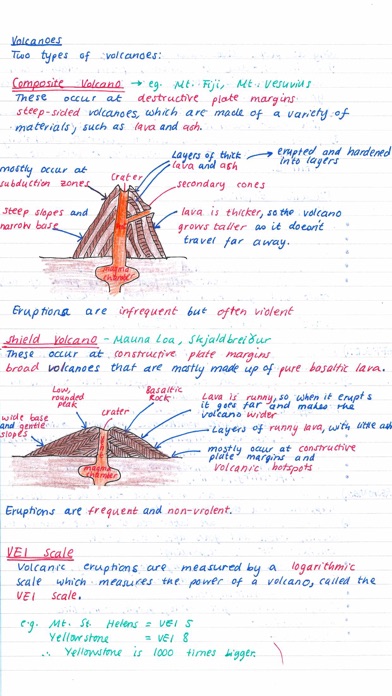 Volcanoes
Two types of volcanoes:
Composite Volcano → eg. Mt. Fiji, Mt. Vesuvius
These occur at destructive plate margins
steep-sided volcanoes, which are made of a variety of
materials, such as lava and ash.
mostly occur at
subduction zones
crater
Layers of thick
lava and ash
erupted and hardened
into layers
secondary cones
steep slopes and
narrow base
lava is thicker, so the volcano
grows taller as it doesn't
travel far away.
magma
chamber
Eruptions are infrequent but often violent
Shield Volcano - Mauna Loa, Skjaldbreiður
These occur at constructive plate margins
broad volcanoes that are mostly made up of pure basaltic lava.
Low,
rounded
peak
crater
Basaltic
Rock
Lava is runny, so when it erupts
it goes far and makes the
volcano wider
wide base
and gentle
slopes
Layers of runny lava, with little ash
mostly occur at constructive
plate margins and
volcanic hotspots
magma
chamber
Eruptions are frequent and non-violent.
VEI Scale
Volcanic eruptions are measured by a logarithmic
scale which measures the power of a volcano, called the
VEI scale.
e.g. Mt. St. Helens = VEI 5
Yellowstone = VEI 8
∴ Yellowstone is 1000 times bigger.